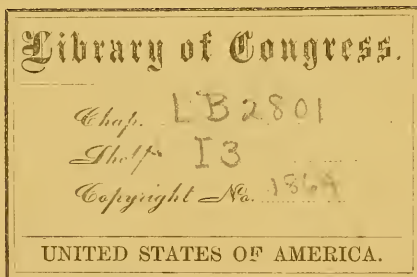 Library of Congress.
Chap. LB2801
Shelf I3
Copyright No. 1864
UNITED STATES OF AMERICA.